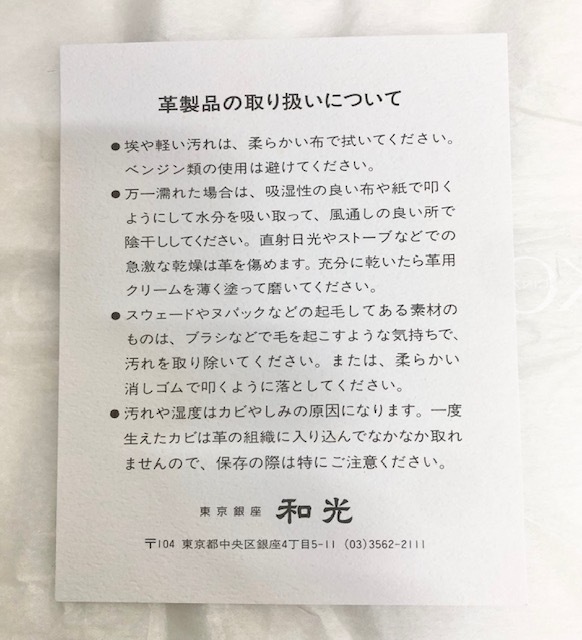 革製品の取り扱いについて
●埃や軽い汚れは、柔らかい布で拭いてください。
ベンジン類の使用は避けてください。
●万一濡れた場合は、吸湿性の良い布や紙で叩く
ようにして水分を吸い取って、風通しの良い所で
陰干ししてください。直射日光やストーブなどでの
急激な乾燥は革を傷めます。充分に乾いたら革用
クリームを薄く塗って磨いてください。
●スウェードやヌバックなどの起毛してある素材の
ものは、ブラシなどで毛を起こすような気持ちで、
汚れを取り除いてください。または、柔らかい
消しゴムで叩くように落としてください。
●汚れや湿度はカビやしみの原因になります。一度
生えたカビは革の組織に入り込んでなかなか取れ
ませんので、保存の際は特にご注意ください。
東京銀座 和光
〒104 東京都中央区銀座4丁目5-11 (03)3562-2111